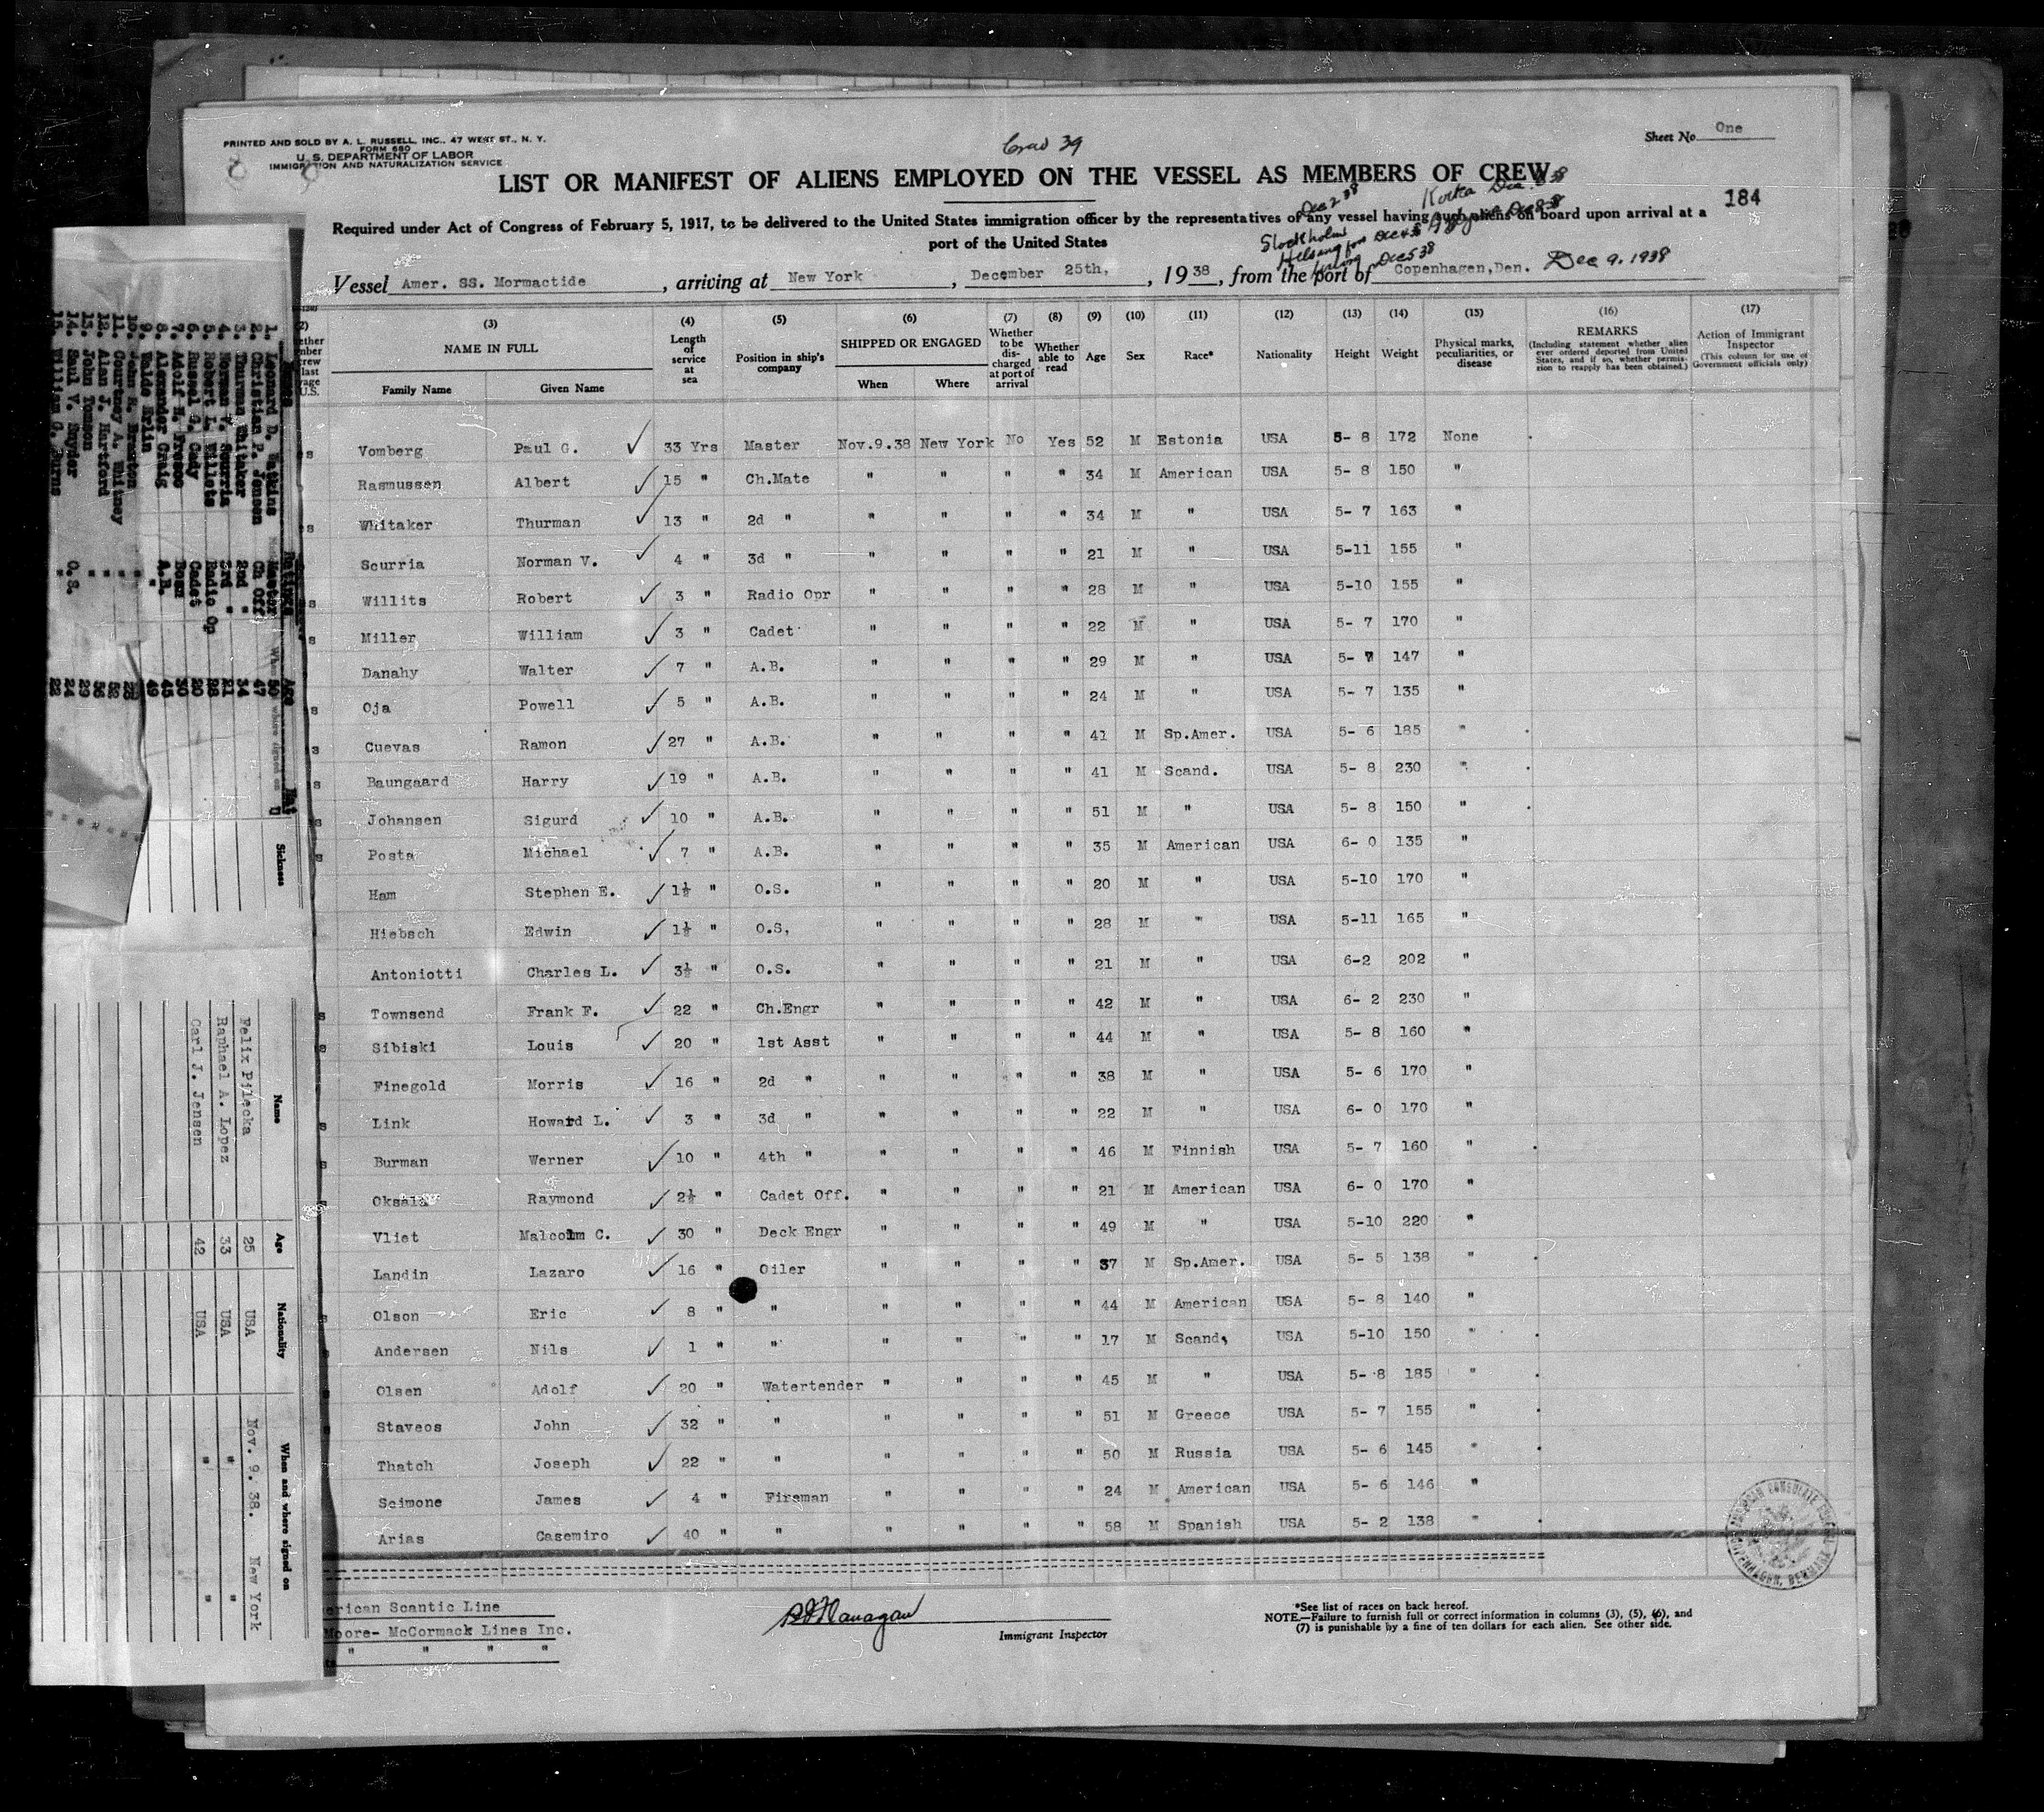 PRINTED AND SOLD BY A. L. RUSSELL, INC., 47 WEST ST., N. Y.
FORM 680
U. S. DEPARTMENT OF LABOR
IMMIGRATION AND NATURALIZATION SERVICE
39
Sheet No. One
LIST OR MANIFEST OF ALIENS EMPLOYED ON THE VESSEL AS MEMBERS OF CREW
184
Required under Act of Congress of February 5, 1917, to be delivered to the United States immigration officer by the representatives of any vessel having such aliens on board upon arrival at a
port of the United States
Dec 2 38
Kotka Dec. 38
Stockholm
Helsingfors Dec 4 38
Dec 5 38
Dec 8 38
Vessel Amer. SS. Mormactide, arriving at New York, December 25th, 1938, from the port of Copenhagen, Den. Dec 9. 1938
(3) (4) (5) (6) (7) (8) (9) (10) (11) (12) (13) (14) (15) (16) (17)
NAME IN FULL
Family Name Given Name
Length of service at sea
Position in ship's company
SHIPPED OR ENGAGED
When Where
Whether to be discharged at port of arrival
Whether able to read
Age Sex Race* Nationality Height Weight
Physical marks, peculiarities, or disease
REMARKS
(Including statement whether alien ever ordered deported from United States, and if so, whether permission to reapply has been obtained.)
Action of Immigrant Inspector
(This column for use of Government officials only)
Vomberg Paul G. ✓ 33 Yrs Master Nov.9.38 New York No Yes 52 M Estonia USA 5- 8 172 None
Rasmussen Albert ✓ 15 " Ch.Mate " " " " 34 M American USA 5- 8 150 "
Whitaker Thurman ✓ 13 " 2d " " " " " 34 M " USA 5- 7 163 "
Scurria Norman V. ✓ 4 " 3d " " " " " 21 M " USA 5-11 155 "
Willits Robert ✓ 3 " Radio Opr " " " " 28 M " USA 5-10 155 "
Miller William ✓ 3 " Cadet " " " " 22 M " USA 5- 7 170 "
Danahy Walter ✓ 7 " A.B. " " " " 29 M " USA 5- 7 147 "
Oja Powell ✓ 5 " A.B. " " " " 24 M " USA 5- 7 135 "
Cuevas Ramon ✓ 27 " A.B. " " " " 41 M Sp.Amer. USA 5- 6 185 "
Baungaard Harry ✓ 19 " A.B. " " " " 41 M Scand. USA 5- 8 230 "
Johansen Sigurd ✓ 10 " A.B. " " " " 51 M " USA 5- 8 150 "
Posta Michael ✓ 7 " A.B. " " " " 35 M American USA 6- 0 135 "
Ham Stephen E. ✓ 1½ " O.S. " " " " 20 M " USA 5-10 170 "
Hiebsch Edwin ✓ 1½ " O.S, " " " " 28 M " USA 5-11 165 "
Antoniotti Charles L. ✓ 3½ " O.S. " " " " 21 M " USA 6-2 202 "
Townsend Frank F. ✓ 22 " Ch.Engr " " " " 42 M " USA 6- 2 230 "
Sibiski Louis ✓ 20 " 1st Asst " " " " 44 M " USA 5- 8 160 "
Finegold Morris ✓ 16 " 2d " " " " " 38 M " USA 5- 6 170 "
Link Howard L. ✓ 3 " 3d " " " " " 22 M " USA 6- 0 170 "
Burman Werner ✓ 10 " 4th " " " " " 46 M Finnish USA 5- 7 160 "
Oksala Raymond ✓ 2½ " Cadet Off. " " " " 21 M American USA 6- 0 170 "
Vliet Malcolm C. ✓ 30 " Deck Engr " " " " 49 M " USA 5-10 220 "
Landin Lazaro ✓ 16 " Oiler " " " " 37 M Sp.Amer. USA 5- 5 138 "
Olson Eric ✓ 8 " " " " " " 44 M American USA 5- 8 140 "
Andersen Nils ✓ 1 " " " " " " 17 M Scand, USA 5-10 150 "
Olsen Adolf ✓ 20 " Watertender " " " " 45 M " USA 5- 8 185 "
Staveos John ✓ 32 " " " " " " 51 M Greece USA 5- 7 155 "
Thatch Joseph ✓ 22 " " " " " " 50 M Russia USA 5- 6 145 "
Scimone James ✓ 4 " Fireman " " " " 24 M American USA 5- 6 146 "
Arias Casemiro ✓ 40 " " " " " " 58 M Spanish USA 5- 2 138 "
rican Scantic Line
Moore- McCormack Lines Inc.
" " "
Immigrant Inspector
*See list of races on back hereof.
NOTE.—Failure to furnish full or correct information in columns (3), (5), (6), and
(7) is punishable by a fine of ten dollars for each alien. See other side.
AMERICAN CONSULATE GENERAL
COPENHAGEN, DENMARK
Names Ratings Age
1. Leonard D. Watkins Master 50
2. Christian P. Jensen Ch Off 47
3. Thurman Whitaker 2nd " 34
4. Norman V. Scurria 3rd " 21
5. Robert L. Willets Radio Op 28
6. Russel G. Cady Cadet 20
7. Adolf H. Froese Bosn 30
8. Alexander Craig A.B. 45
9. Walde Erlin " 49
10. John R. Braxton "
11. Courtney A. Whitney " 52
12. Alan J. Hartford " 36
13. John Tomson " 29
14. Saul V. Snyder O.S. 24
15. William G. Burns " 22
Sickness
Name Age Nationality When and where signed on
Felix Pilecka 25 USA Nov. 9. 38. New York
Raphael A. Lopez 33 USA " "
Carl J. Jensen 42 USA " "